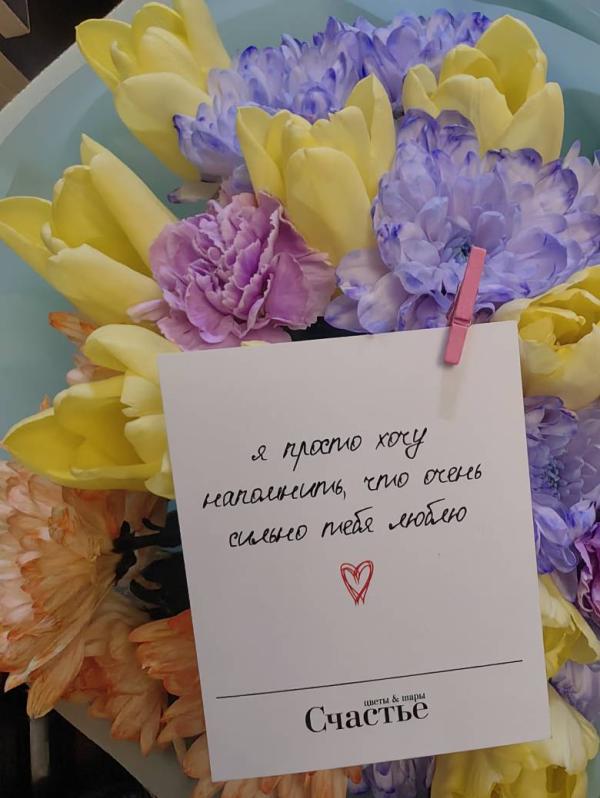 я просто хочу
напомнить, что очень
сильно тебя люблю
цветы & шары
Счастье